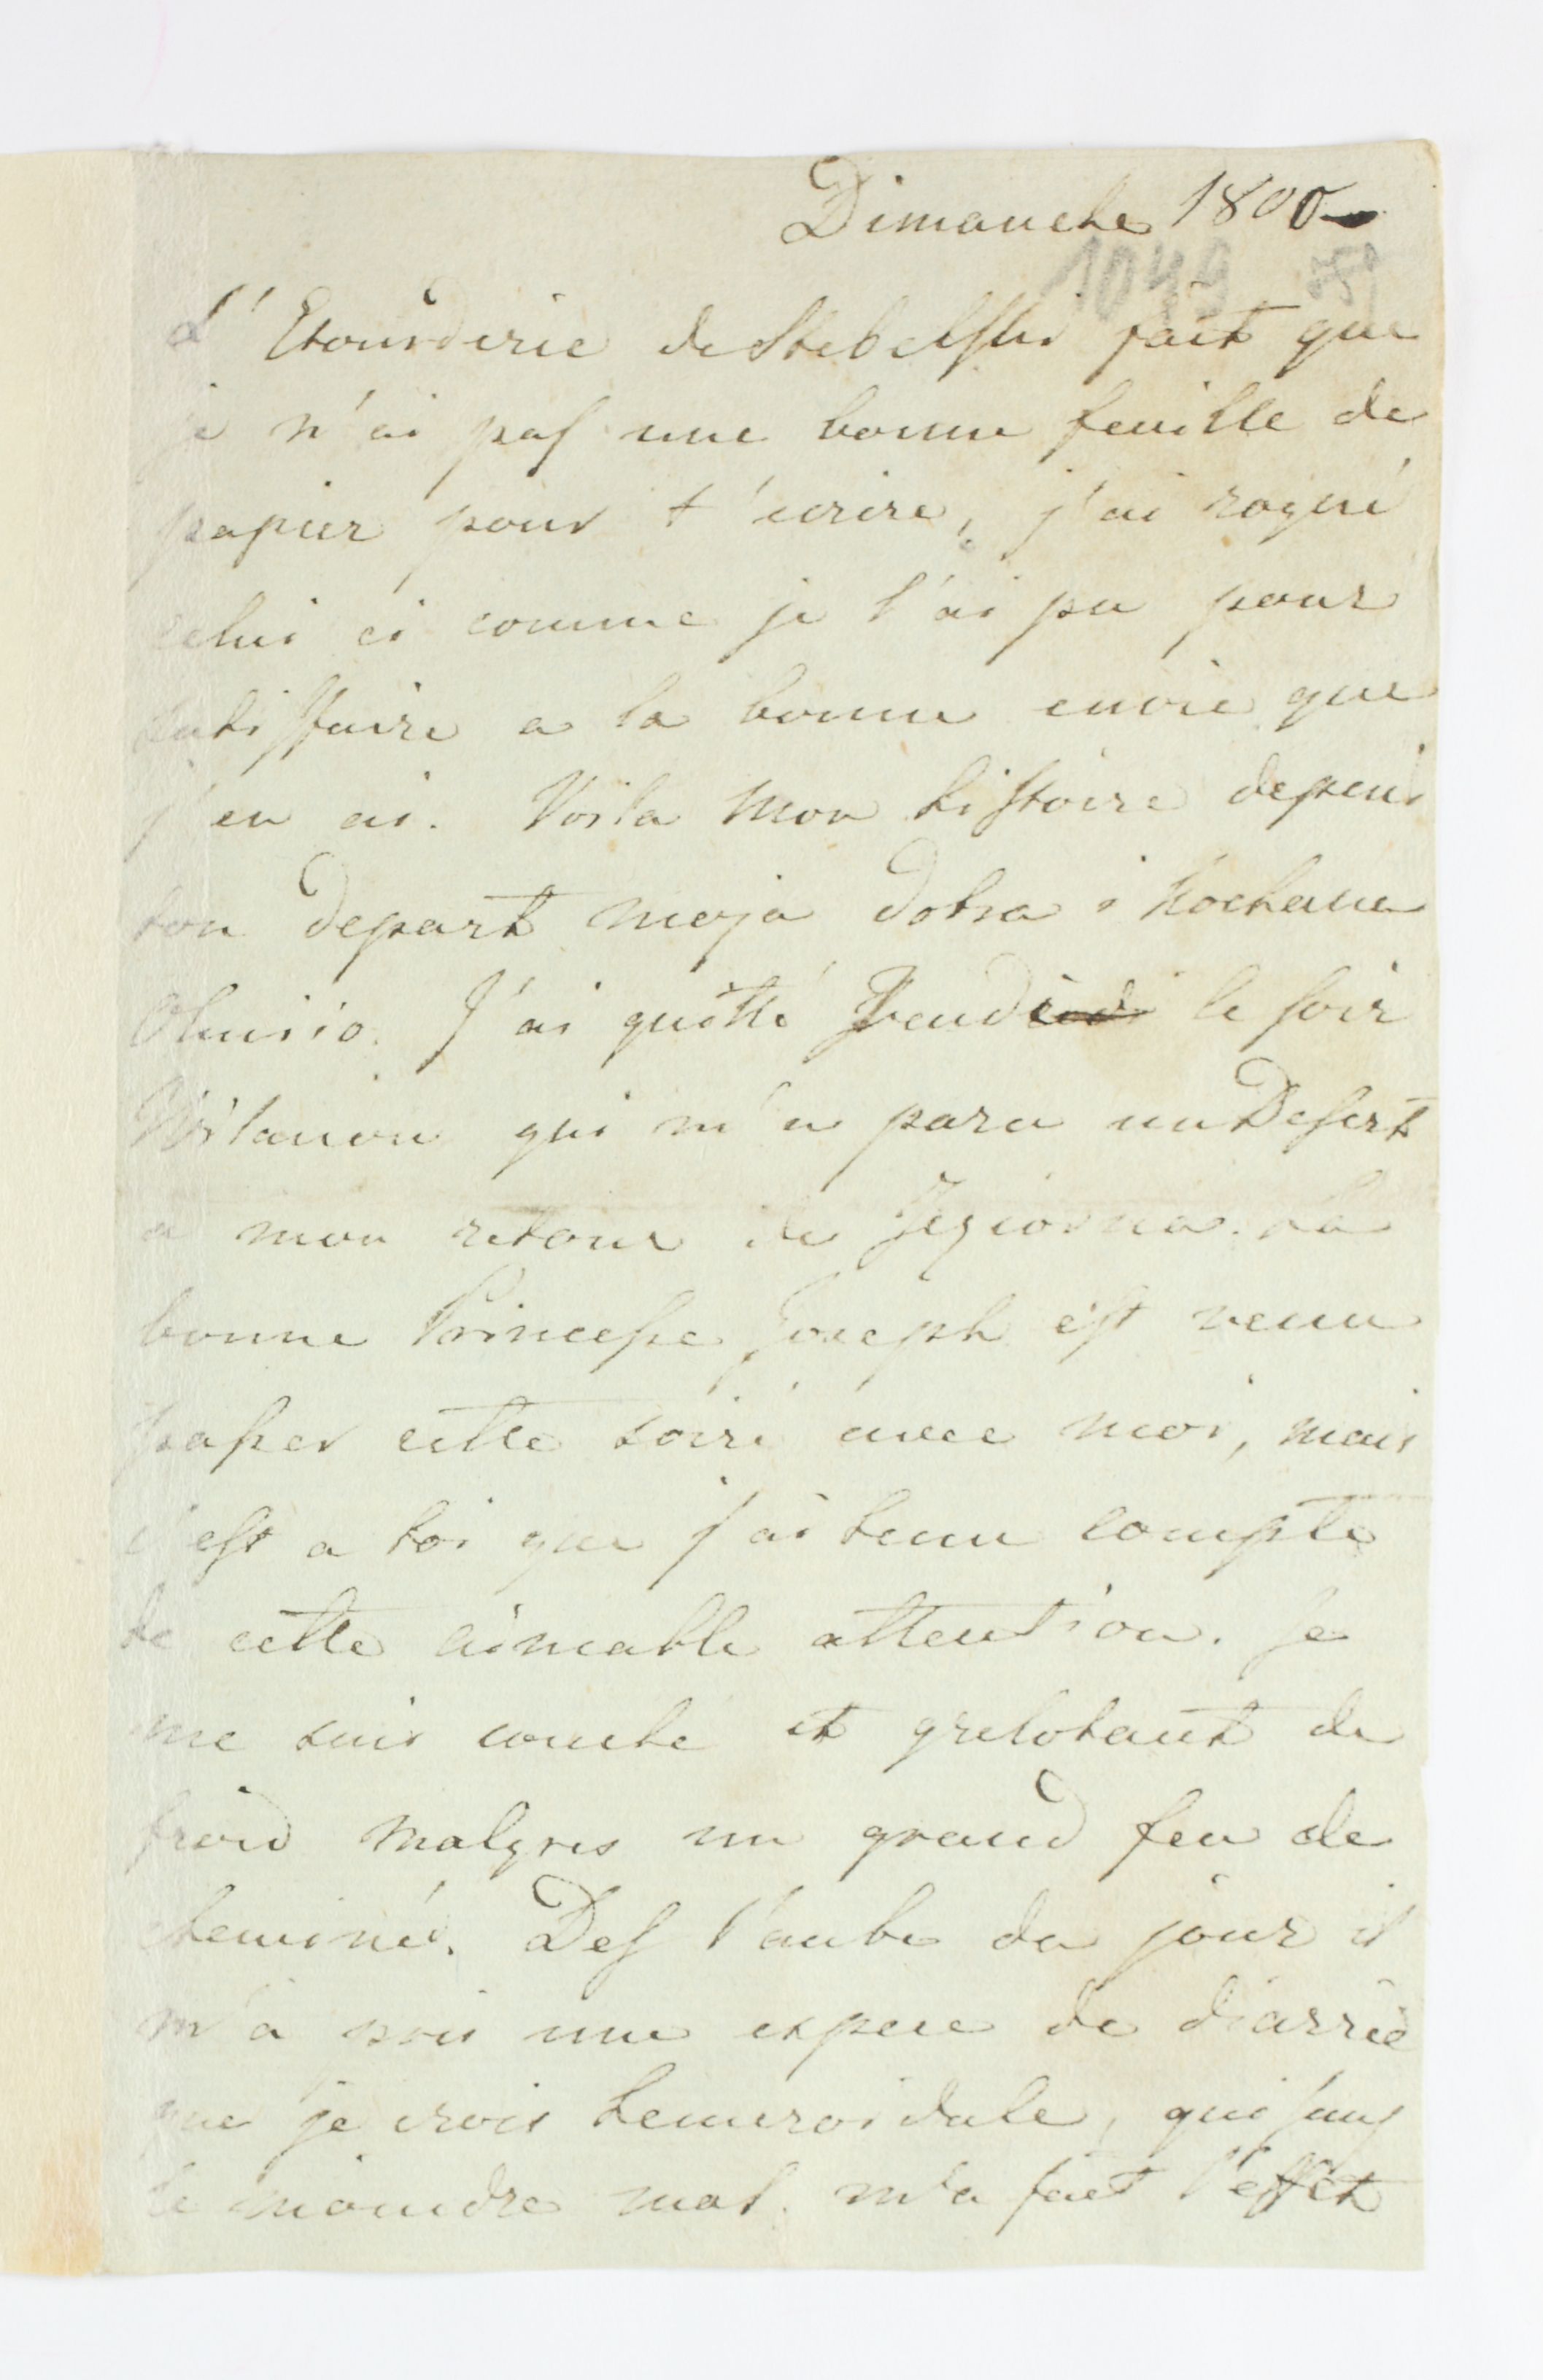 Dimanche 1800
1049 59
L'Etourderie de Stebelski fait que
je n'ai pas une bonne feuille de
papier pour t'ecrire, j'ai rogné
celui ci comme je l'ai pu pour
satisfaire a la bonne envie que
j'en ai. Voila mon histoire depuis
ton depart moja dobra i kochana
Olusiо. J'ai quitté Jeudi le soir
Wilanow qui m'a paru un Desert
a mon retour de Jeziorna. La
bonne Princesse Joseph est venu
passer cette soiré avec moi, mais
c'est a toi que j'ai tenu compte
de cette aimable attention. Je
me suis couché et grelotant de
froid malgres un grand feu de
cheminé. Des l'aube du jour il
m'a pris une expece de diarrée
que je crois hemeroidale, qui sans
le moindre mal m'a fait l'effet